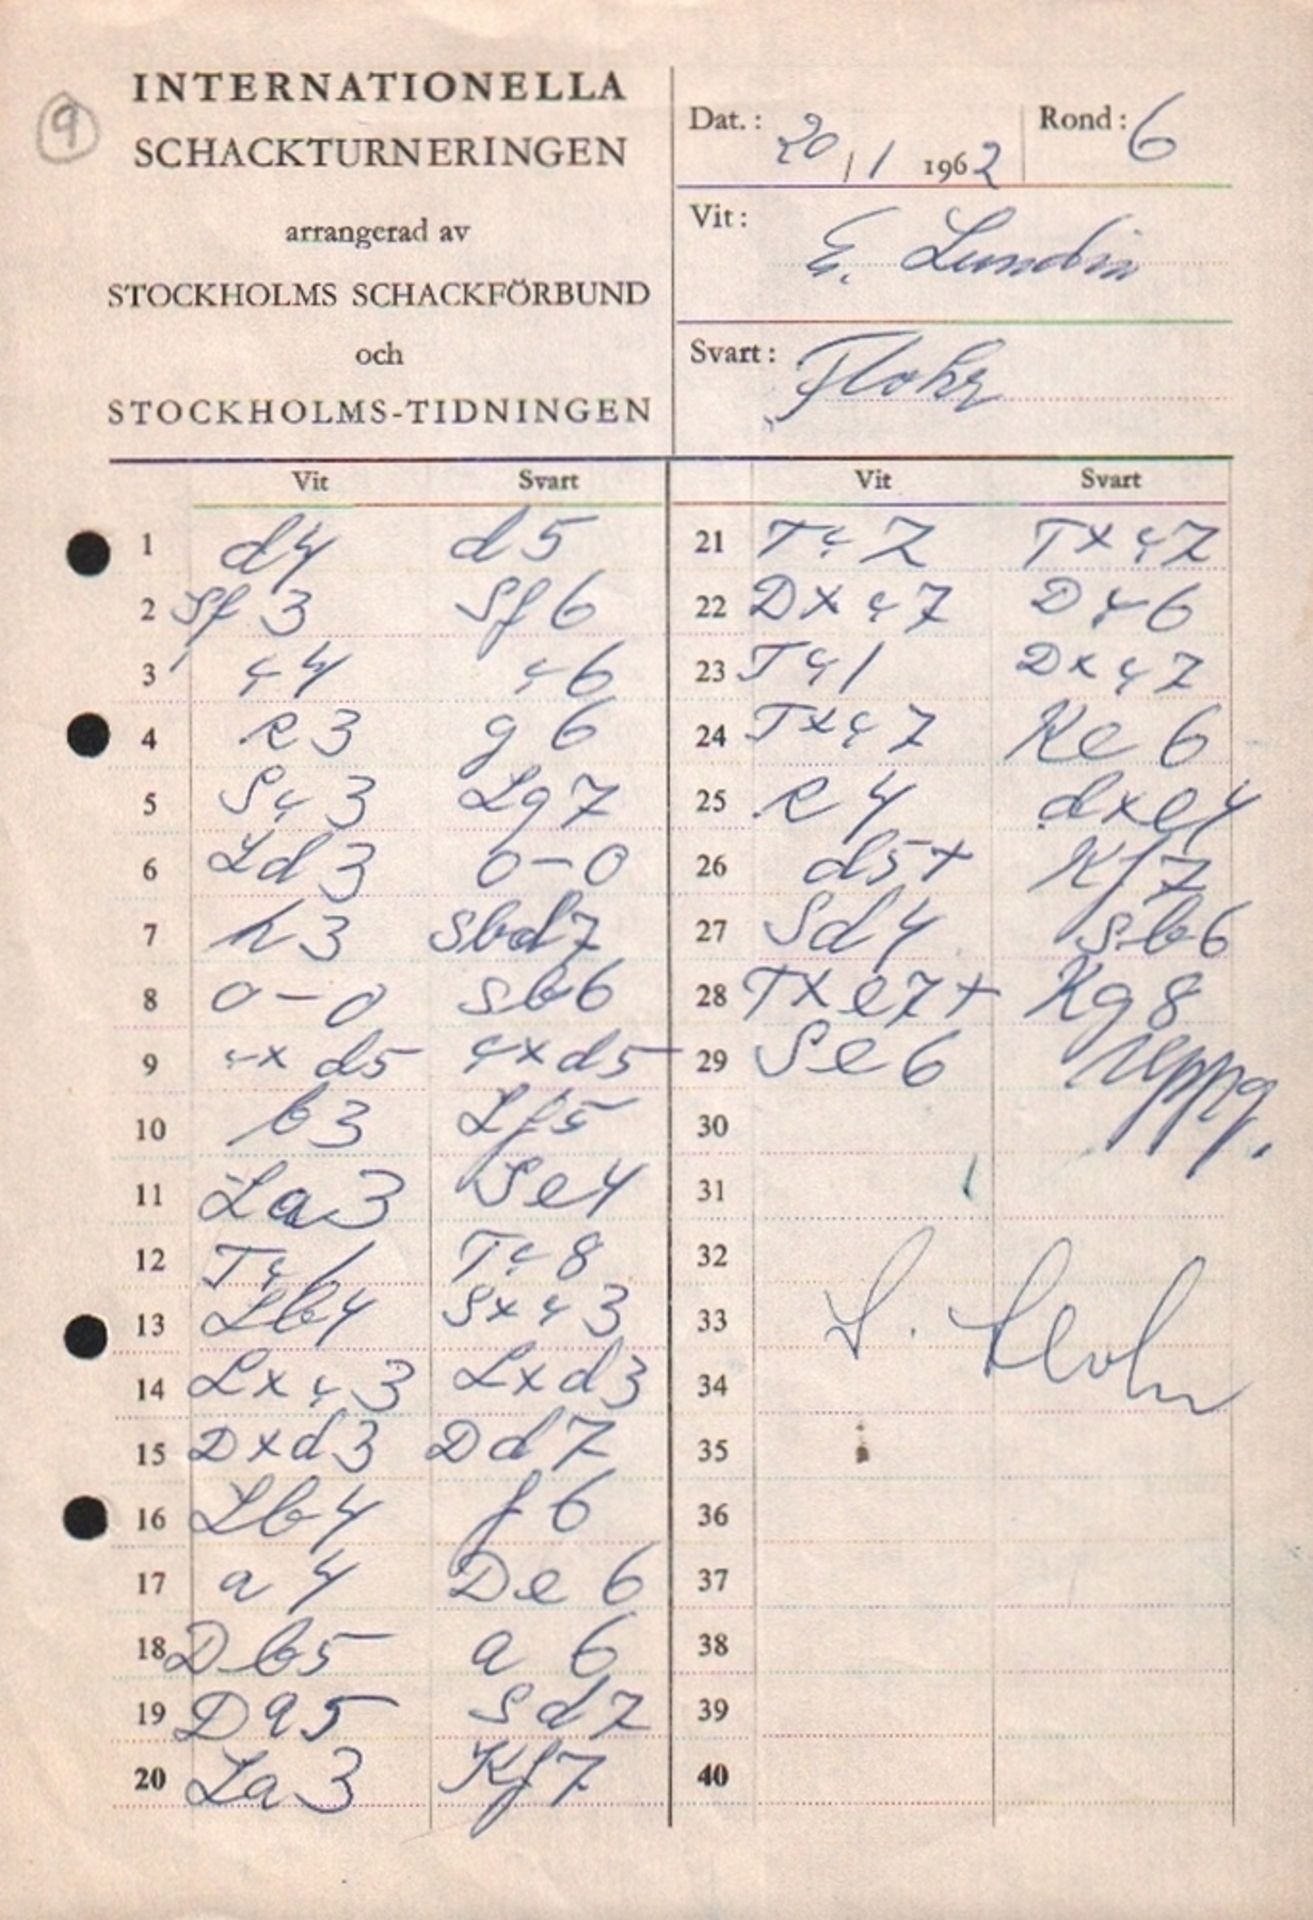 9
INTERNATIONELLA
SCHACKTURNERINGEN
arrangerad av
STOCKHOLMS SCHACKFÖRBUND
och
STOCKHOLMS-TIDNINGEN
Dat.: 20/1 1962 Rond: 6
Vit: E. Lundin
Svart: Flohr
Vit Svart
1 d4 d5
2 Sf3 Sf6
3 c4 c6
4 e3 g6
5 Sc3 Lg7
6 Ld3 0-0
7 h3 Sbd7
8 0-0 Sb6
9 cxd5 cxd5
10 b3 Lf5
11 La3 Se4
12 Tc1 Tc8
13 Lb4 Sxc3
14 Lxc3 Lxd3
15 Dxd3 Dd7
16 Lb4 f6
17 a4 De6
18 Db5 a6
19 Da5 Sd7
20 La3 Kf7
Vit Svart
21 Tc7 Txc7
22 Dxc7 Dc6
23 Tc1 Dxc7
24 Txc7 Ke6
25 e4 dxe4
26 d5+ Kf7
27 Sd4 Sb6
28 Txe7+ Kg8
29 Se6 uppg.
30
31
32
33 S. Flohr
34
35
36
37
38
39
40